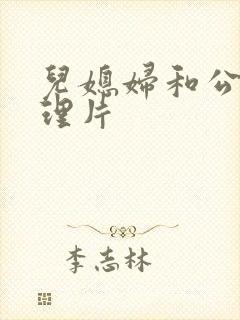 兒媳婦和公
理片
李志林